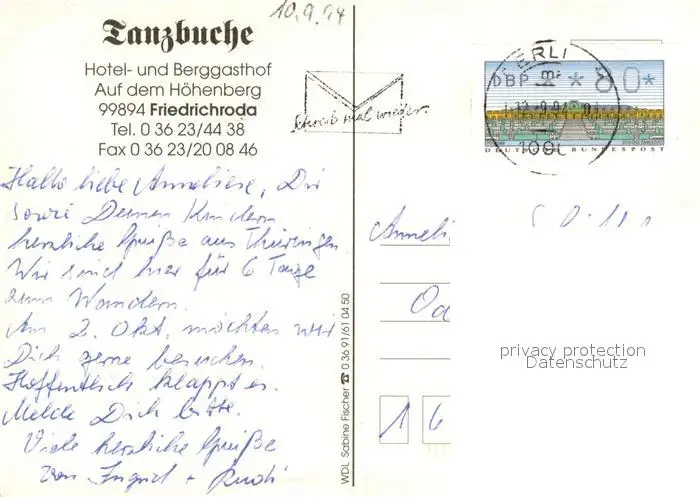 10.9.94
Tanzbuche
Hotel- und Berggasthof
Auf dem Höhenberg
99894 Friedrichroda
Tel. 0 36 23/44 38
Fax 0 36 23/20 08 46
Hallo liebe Anneliese, Dir
sowie Deinen Kindern
herzliche Grüße aus Thüringen
Wir sind hier für 6 Tage
zum Wandern.
Am 2. Okt. möchten wir
Dich gerne besuchen.
Hoffentlich klappt es.
Melde Dich bitte.
Viele herzliche Grüße
von Ingrid + Rudi
WDL Sabine Fischer ☎ 0 36 91/61 04 50
Schreib mal wieder.
BERLI
DBP * 80*
DEUTSCHE BUNDESPOST
Anneli
Oa
privacy protection
Datenschutz
1 6